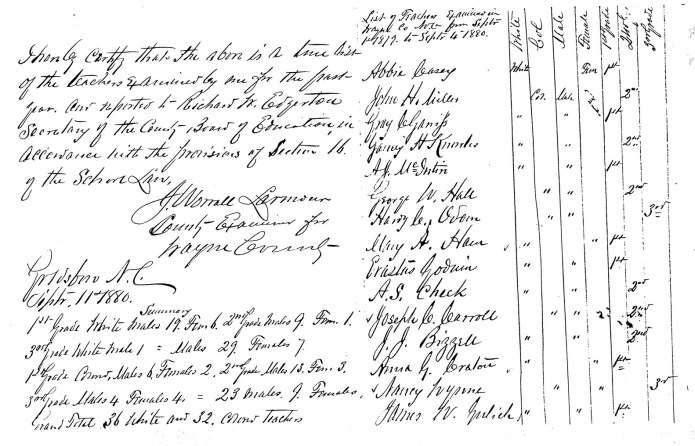 I hereby certify that the above is a true list
of the teachers examined by me for the past
year. and reported to Richard W. Edgerton
Secretary of the County Board of Education in
accordance with the provisions of Section 16.
of the School Law,
J. Worrall Larmour
County Examiner for
Wayne County
Goldsboro N.C.
Septr. 11th 1880.
Summary
1st Grade White Males 19. Fem 6. 2nd Grade Males 9. Fem. 1.
3rd Grade White Male 1 = Males 29. Females 7
1st Grade Cored, Males 6, Females 2, 2nd Grade Males 13. Fem. 3.
3rd Grade Males 4 Females 4. = 23 Males. 9. Females,
Grand Total 36 White and 32. Cored Teachers
List of Teachers Examined in
Wayne Co. from Septr
1st 1879. to Septr 4th 1880.
White Col Male Female 1st Grade 2nd " 3rd Grade
Abbie Casey White Fem 1st
John H. Miller Co. Male 2nd
Gray " " 1st
H. Knowles " " 2nd
A.J. " " 1st
George W. Hall " " 2nd
Hardy C. Odom " " 3rd
Mary A. Ham " " 1st
Erastus Godwin " " 1st
A.S. Check " " 2nd
Joseph C. Carroll " " 2nd
J.J. Bizzell " " 2nd
Anna G. Craton " " 1st
Nancy Wynne " " 3rd
James W. " " 1st